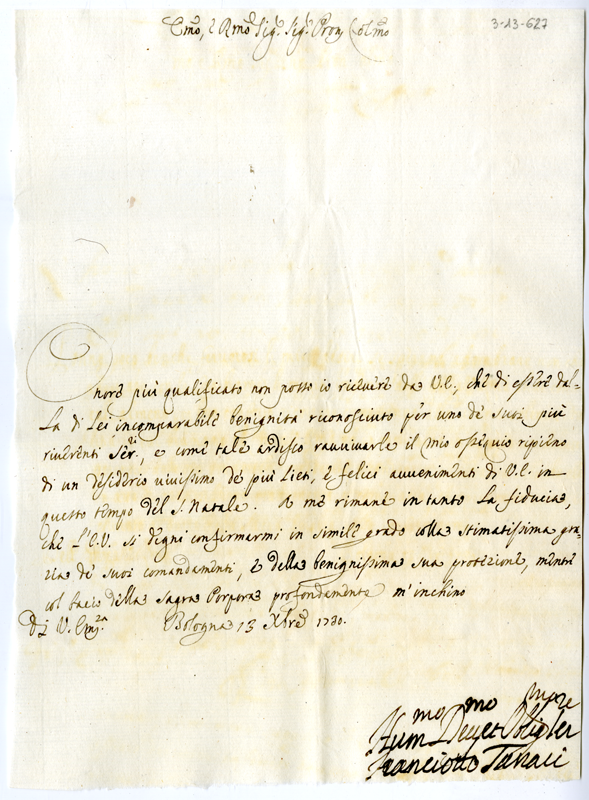 3-13-627
Emo, e Rmo Sig.r Sig.r Pron Colmo
Onore più qualificato non posso io ricevere da V.E., che di essere dal-
la di Lei incomparabile benignità riconosciuto per uno de suoi più
riverenti Ser.ri, e come tale ardisco ravvivarle il mio ossequio ripieno
di un desiderio vivissimo de più lieti, e felici avvenimenti di V.E. in
questo tempo del S. Natale. A me rimane in tanto la fiducia,
che l'E.V. si degni confirmarmi in simile grado colla stimatissima gra-
zia de suoi comandamenti, e della benignissima sua protezione, mentre
col bacio della Sagra Porpora profondamente m'inchino
Di V. Emz.a Bologna 13 Xbre 1730.
Hummo Devmo et Obligmo Sere
Franciotto Tanari